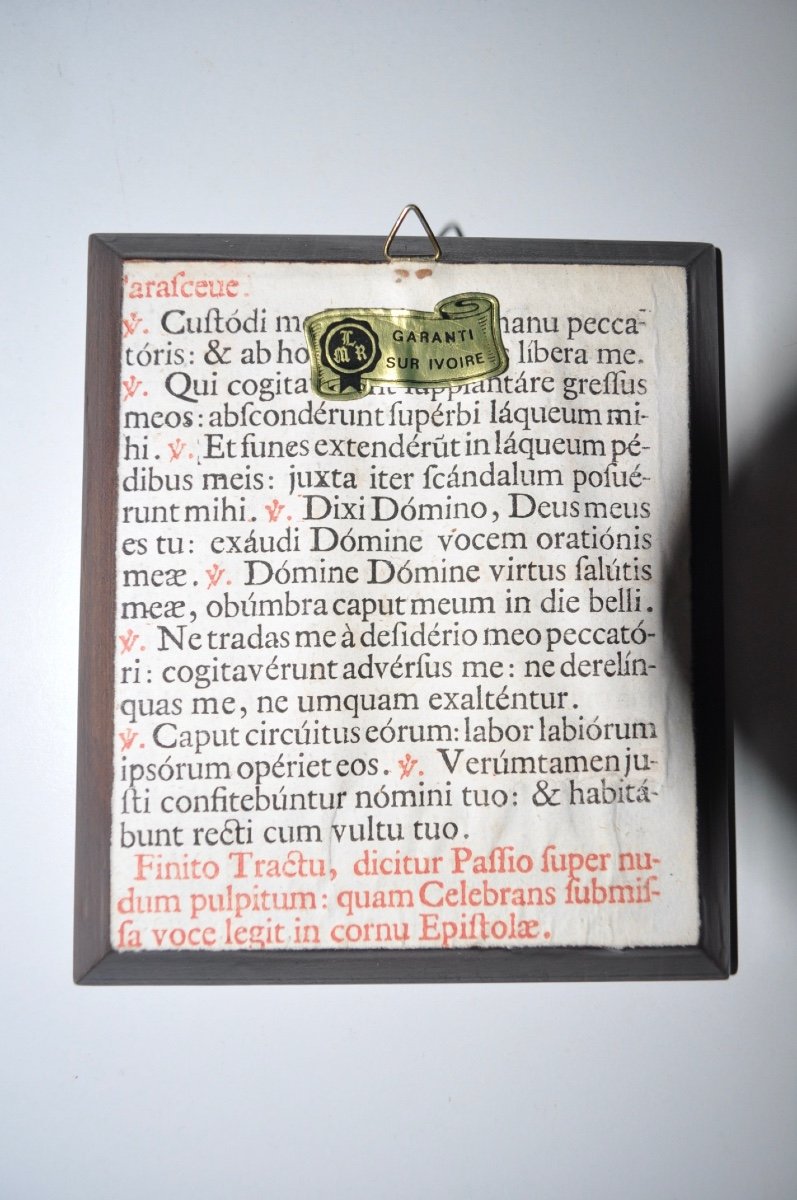 araſceue.
℣. Cuſtódi me manu pecca-
tóris: & ab ho libera me.
GARANTI
SUR IVOIRE
L
M R
℣. Qui cogita ſupplantáre greſſus
meos: abſcondérunt ſupérbi láqueum mi-
hi. ℣. Et funes extendérũt in láqueum pé-
dibus meis: juxta iter ſcándalum poſué-
runt mihi. ℣. Dixi Dómino, Deus meus
es tu: exáudi Dómine vocem oratiónis
meæ. ℣. Dómine Dómine virtus ſalútis
meæ, obúmbra caput meum in die belli.
℣. Ne tradas me à deſidério meo peccató-
ri: cogitavérunt advérſus me: ne derelín-
quas me, ne umquam exalténtur.
℣. Caput circúitus eórum: labor labiórum
ipsórum opériet eos. ℣. Verúmtamen ju-
ſti confitebúntur nómini tuo: & habitá-
bunt recti cum vultu tuo.
Finito Tractu, dicitur Paſſio ſuper nu-
dum pulpitum: quam Celebrans ſubmiſ-
ſa voce legit in cornu Epiſtolæ.